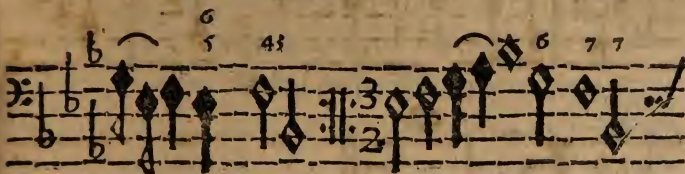 6
5 43 6 7 7
3
2